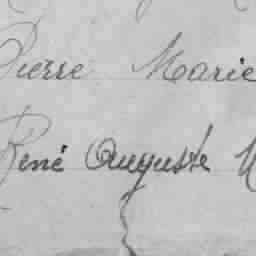 Pierre Marie
René Auguste